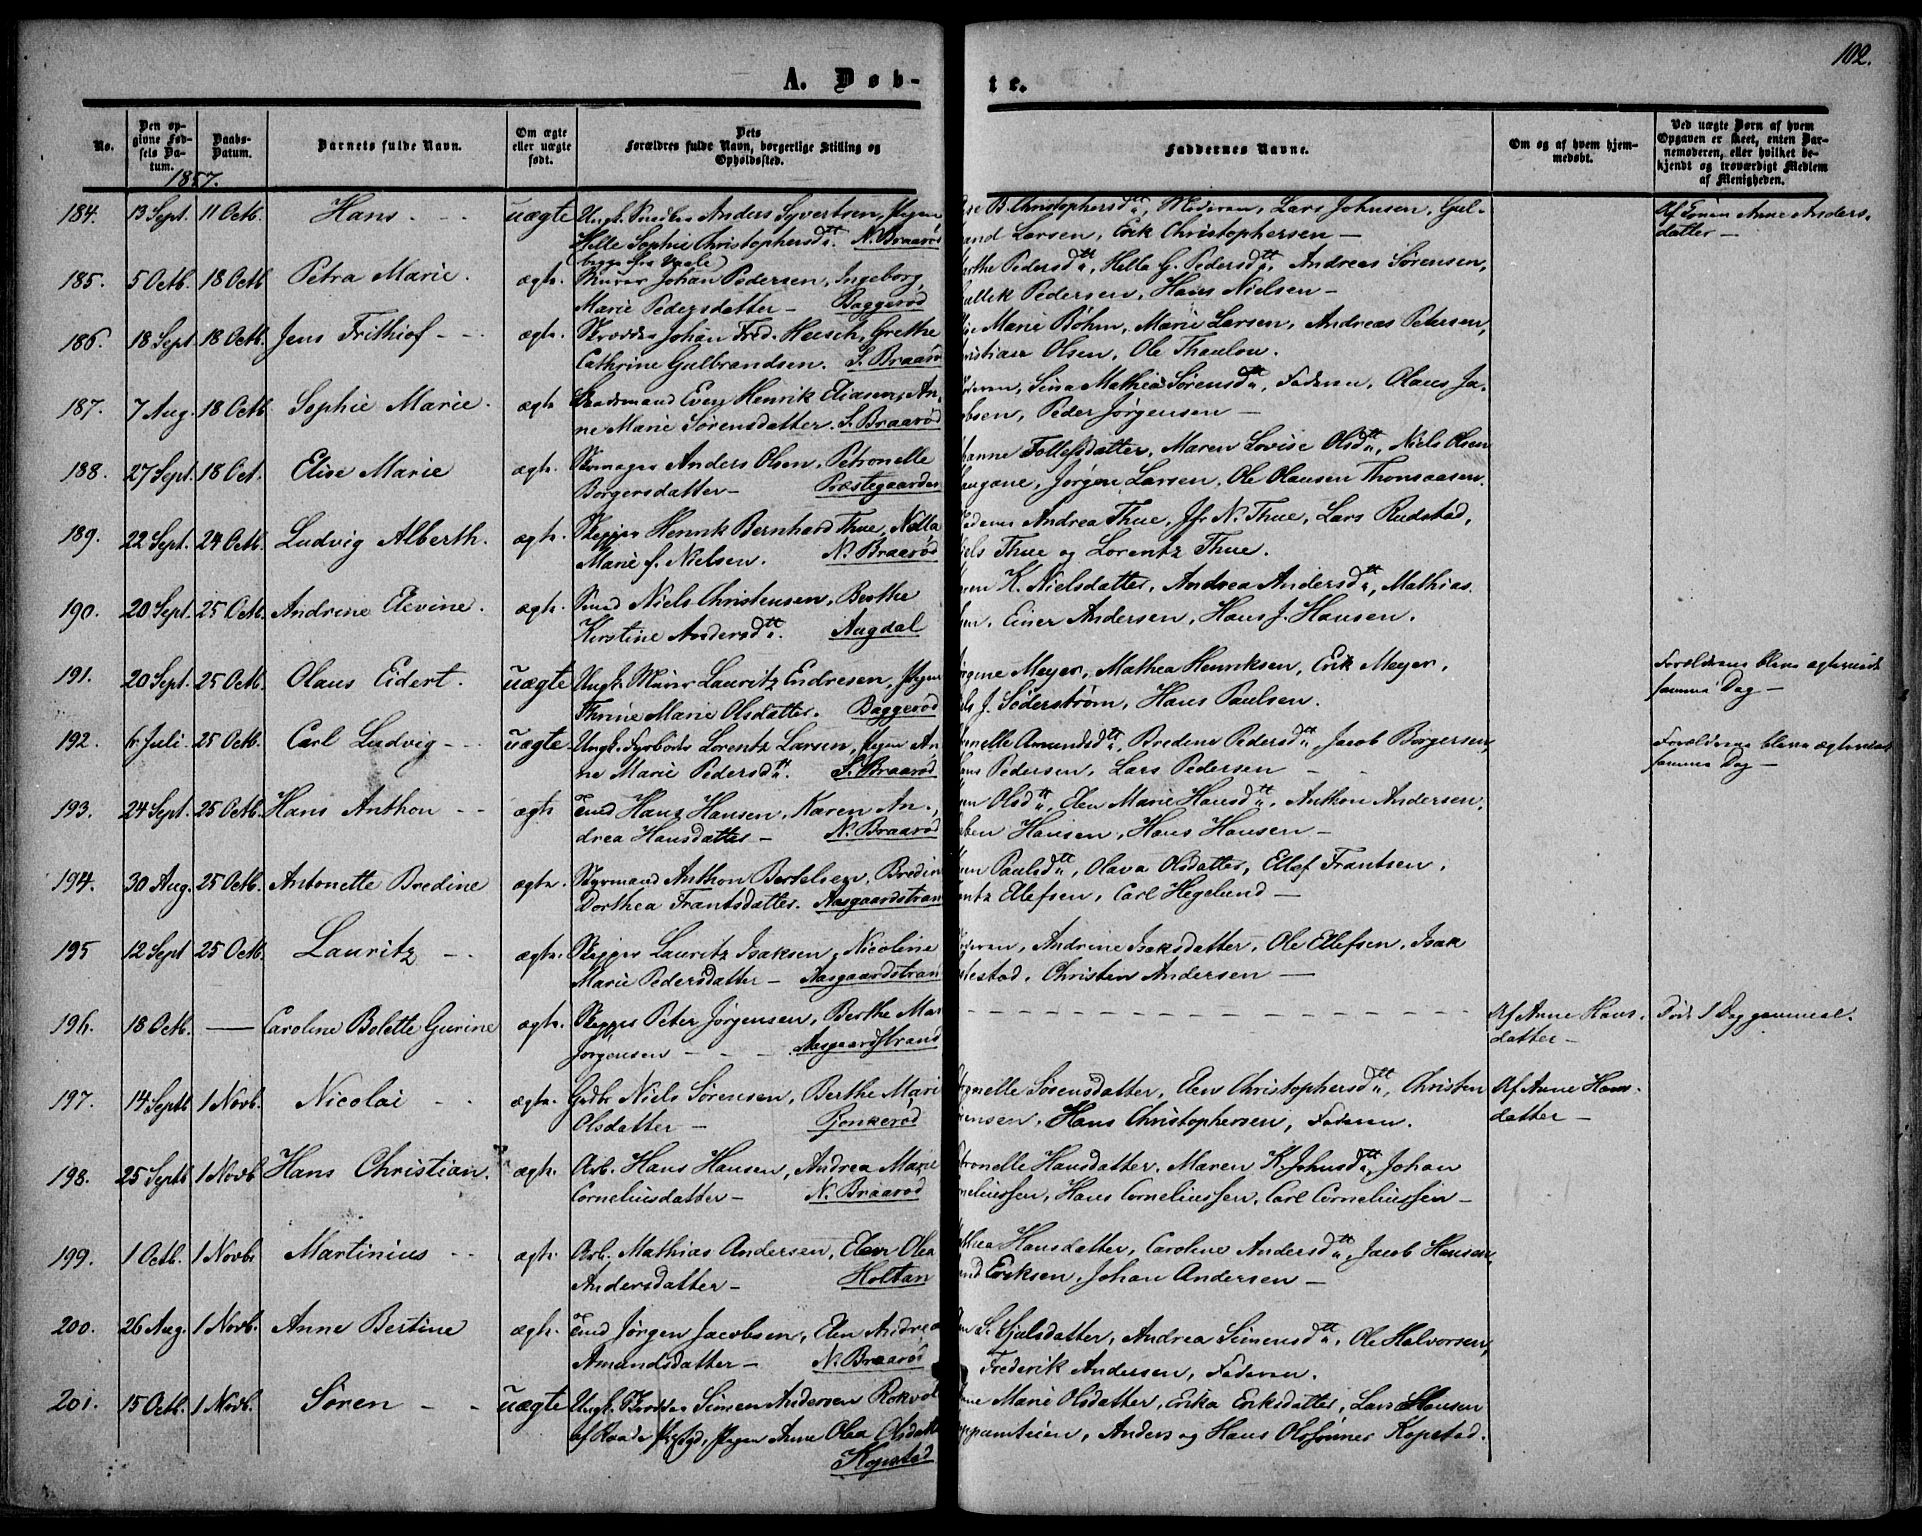 102.
A. Døb-
te.
No.
Den op-
givne Fød-
sels Da-
tum.
Daabs-
Datum.
Barnets fulde Navn.
Om ægte
eller uægte
født.
Dets
Forældres fulde Navn, borgerlige Stilling og
Opholdssted.
Faddernes Navne.
Om og af hvem hjem-
medøbt.
Ved uægte Børn af hvem
Opgaven er skeet, enten Bar-
nemoderen, eller hvilket be-
kjendt og troværdigt Medlem
af Menigheden.
1857.
184. 13 Sept. 11 Octb. Hans - - uægte Ungk. Anders Syvertsen, Pigen
Helle Sophie Christophersdtr. N. Braarød
(begge fra Vaale)
B. Christophersdtr, Moderen, Lars Johnsen, Gul-
brand Larsen, Erik Christophersen -
Anne Anders-
datter -
185. 5 Octb. 18 Octb Petra Marie. ægte. Murer Johan Pedersen, Ingeborg
Marie Pedersdatter - Baggerød
Pedersdtr, Helle G. Pedersdtr, Andreas Sørensen,
Pedersen, Hans Nielsen -
186. 18 Sept 18 Octb. Jens Frithiof - - ægte. Skrædder Johan Fred. Heesch, Grethe
Cathrine Gulbrandsen. S. Braarød
Marie Bøhm, Marie Larsen, Andreas Petersen,
Olsen, Ole Thaulow.
187. 7 Aug. 18 Octb Sophie Marie. ægte Even Henrik Eliasen, An-
ne Marie Sørensdatter. S. Braarød
Moderen, Sina Mathea Sørensdtr, Faderen, Olaus Ja-
kobsen, Peder Jørgensen -
188. 27 Sept. 18 Oct. Elise Marie ægte. Skomager Anders Olsen, Petronelle
Borgersdatter - Præstegaarden
Follefsdatter, Maren Lovise Olsdtr, Niels Olsen
Jørgen Larsen, Ole Olausen
189. 22 Sept. 24 Octb. Ludvig Alberth. ægte. Skipper Henrik Bernhard Thue, Nella
Marie f. Nielsen. N. Braarød
Andrea Thue, Jfr N. Thue, Lars Rudstad,
Niels Thue og Lorentz Thue.
190. 20 Sept. 25 Octb. Andrine Elevine. ægte. Smed Niels Christensen, Berthe
Kirstine Andersdtr. Augdal
K. Nielsdatter, Andrea Andersdtr, Mathias
Einer Andersen, Hans J. Hansen.
191. 20 Sept. 25 Octb. Olaus Eidert. uægte Ungk. Murer Lauritz Endresen, Pigen
Thrine Marie Olsdatter. Baggerød
Meyer, Mathea Henriksen, Erik Meyer,
J. Söderstrøm, Hans Paulsen.
Forældrene bleve ægteviede
samme Dag -
192. 6 Juli. 25 Octb. Carl Ludvig - - uægte. Ungk. Fyrbøder Lorentz Larsen, Pigen An-
ne Marie Pedersdtr. S. Braarød
Petronelle Amundsdtr, Bredine Pedersdtr, Jacob Borgersen,
Pedersen, Lars Pedersen - -
Forældrene bleve ægteviede
samme Dag -
193. 24 Sept. 25 Octb. Hans Anthon - - ægte Hans Hansen, Karen An-
drea Hansdatter - N. Braarød
Olsdtr, Elen Marie Hansdtr, Anthon Andersen,
Hansen, Hans Hansen -
194. 30 Aug. 25 Octb. Antonette Bredine ægte. Styrmand Anthon Bertelsen, Bredine
Dorthea Frantsdatter. Aasgaardstrand
Paulsdtr, Olava Olsdatter, Ellef Frantsen,
Ellefsen, Carl Hegelund -
195 12 Sept 25 Octb. Lauritz - - ægte. Skipper Lauritz Isaksen, Nicoline
Marie Pedersdatter - Aasgaardstrand
Moderen, Andrine Isaksdatter, Ole Ellefsen, Isak
Christen Andersen -
196. 18 Octb. - Caroline Bolette Gurine ægte. Skipper Peter Jørgensen, Berthe Mar
Jørgensen - - - Aasgaardstrand
Af Anne Hans-
datter -
Død 1 Dag gammel.
197. 14 Septb 1 Novb. Nicolai - - ægte. Gdbr Niels Sørensen, Berthe Marie
Olsdatter -
Petronelle Sørensdatter, Elen Christophersdtr, Christen
Hans Christophersen, Faderen.
Af Anne Hans-
datter -
198. 25 Septb 1 Novb Hans Christian. ægte. Arb. Hans Hansen, Andrea Marie
Corneliusdatter - N. Braarød
Petronelle Hansdatter, Maren K. Johnsdtr, Johan
Corneliussen, Hans Corneliussen, Carl Corneliussen -
199. 1 Octb. 1 Novb. Martinius - - ægte. Arb. Mathias Andersen, Elen Olea
Andersdatter - Holtan
Hansdatter, Caroline Andersdtr, Jacob Hansen,
Eriksen, Johan Andersen -
200. 26 Aug. 1 Novb. Anne Bertine ægte. Jørgen Jacobsen, Elen Andrea
Amundsdatter - N. Braarød
Andrea Simensdtr, Ole Halvorsen,
Frederik Andersen, Faderen.
201. 15 Octb. 1 Novb. Søren - - uægte Ungk. Simen Andersen
af Raade Pigen Anne Olea Olsdatter
Kopstad
Marie Olsdatter, Erika Eriksdatter, Lars Hansen
Anders og Hans Olssønner Kopstad.